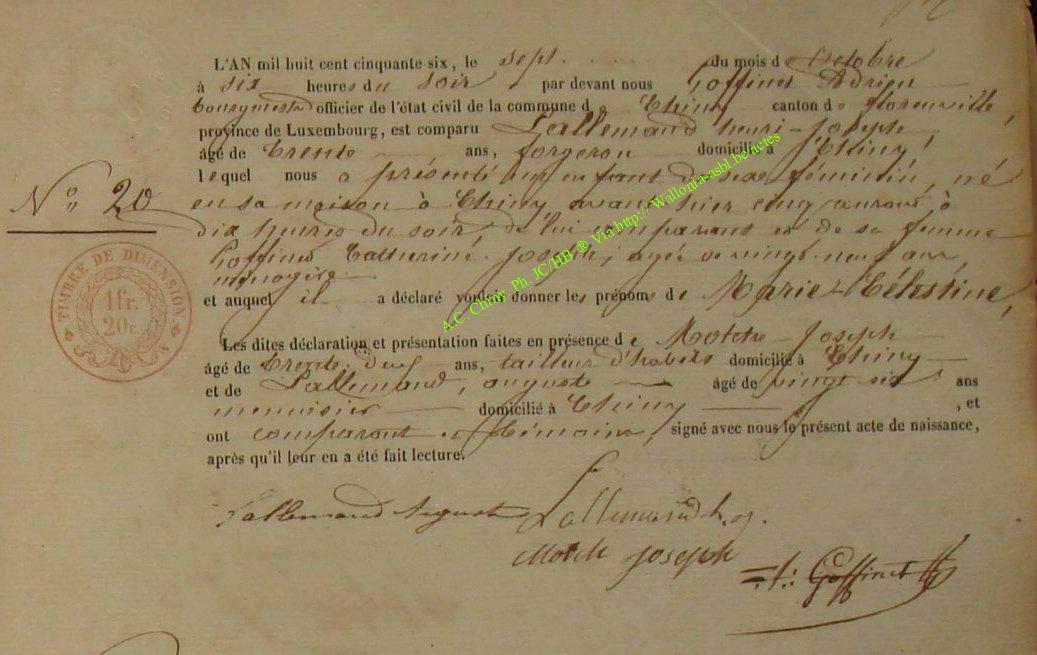 L'AN mil huit cent cinquante-six, le sept du mois d'Octobre
à six heures du soir par devant nous Goffinet Adrien
bourgmestre officier de l'état civil de la commune de Chiny canton de florenville,
province de Luxembourg, est comparu Lallemand henri-Joseph,
âgé de trente ans, forgeron domicilié à Chiny,
lequel nous a présenté un enfant du sexe féminin, né
No 20
en sa maison à Chiny avant hier cinq courant à
dix heures du soir, de lui comparant et de sa femme
Goffinet Catherine Joseph, agée de vingt-neuf ans,
ménagère.
et auquel il a déclaré vouloir donner les prénoms de Marie-Célestine,
TIMBRE DE DIMENSION
1 fr.
20 c.
Les dites déclaration et présentation faites en présence de Motch Joseph
âgé de trente neuf ans, tailleur d'habits domicilié à Chiny
et de Lallemand, auguste âgé de vingt six ans
menuisier domicilié à Chiny , et
ont comparant et témoins, signé avec nous le présent acte de naissance,
après qu'il leur en a été fait lecture.
Lallemand August Lallemand h. j.
Motch Joseph
Goffinet
A.C. Chiny Ph JC/HB ® Via http:// Wallonia-asbl.be/actes